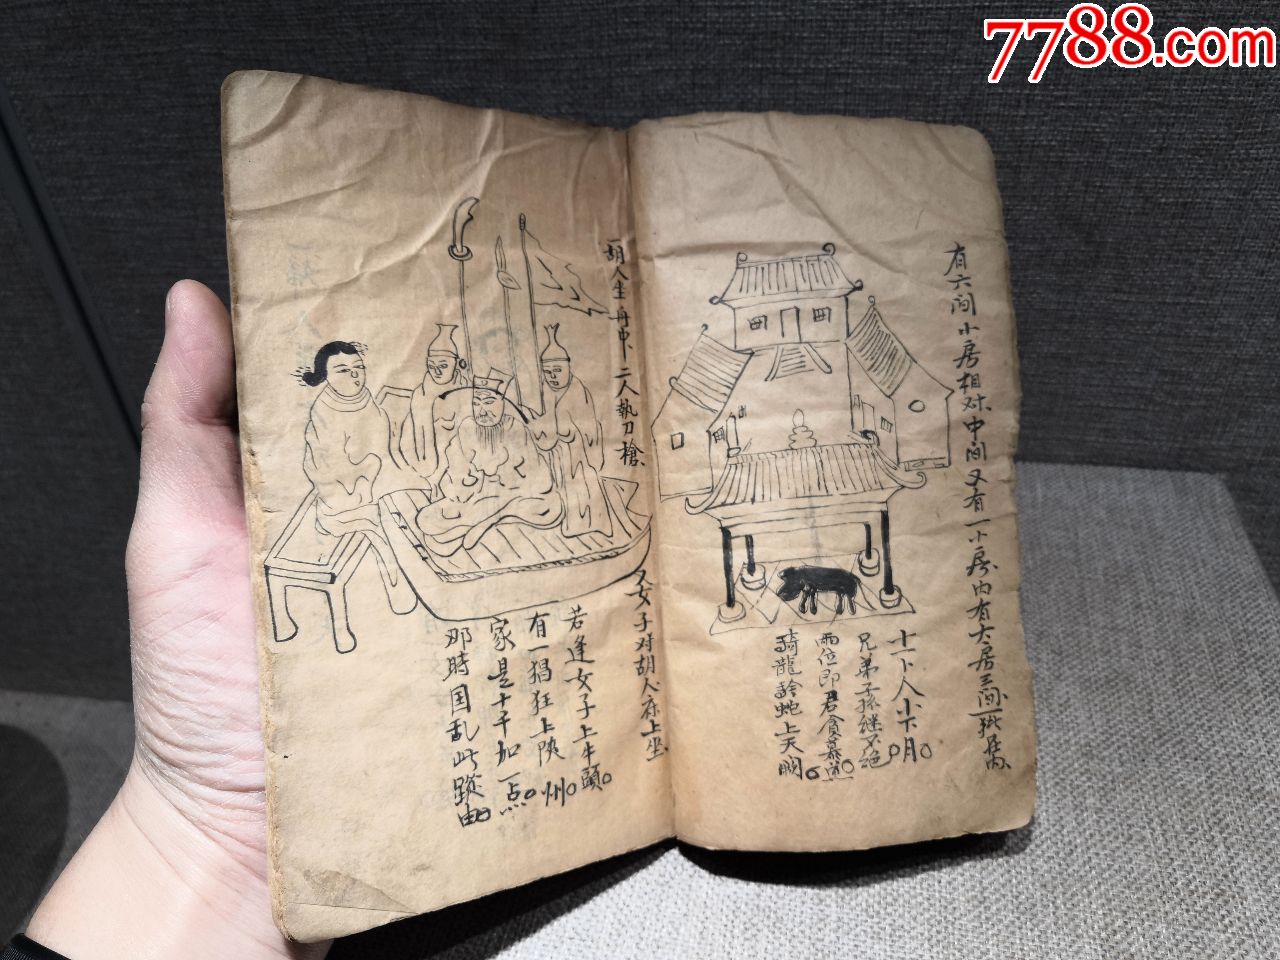 7788.com
有六间小房相对中间又有一小房内有大房三间一猪居焉
十一卜人小卜月
兄弟子孫继不絕
兩位即君貪慕
騎龍跨蛇上天門
一胡人坐舟中二人執刀槍
又女子对胡人府上坐
若逢女子上牛頭
有一猖狂上陝州
家是十干加一点
那時国乱此蹤由